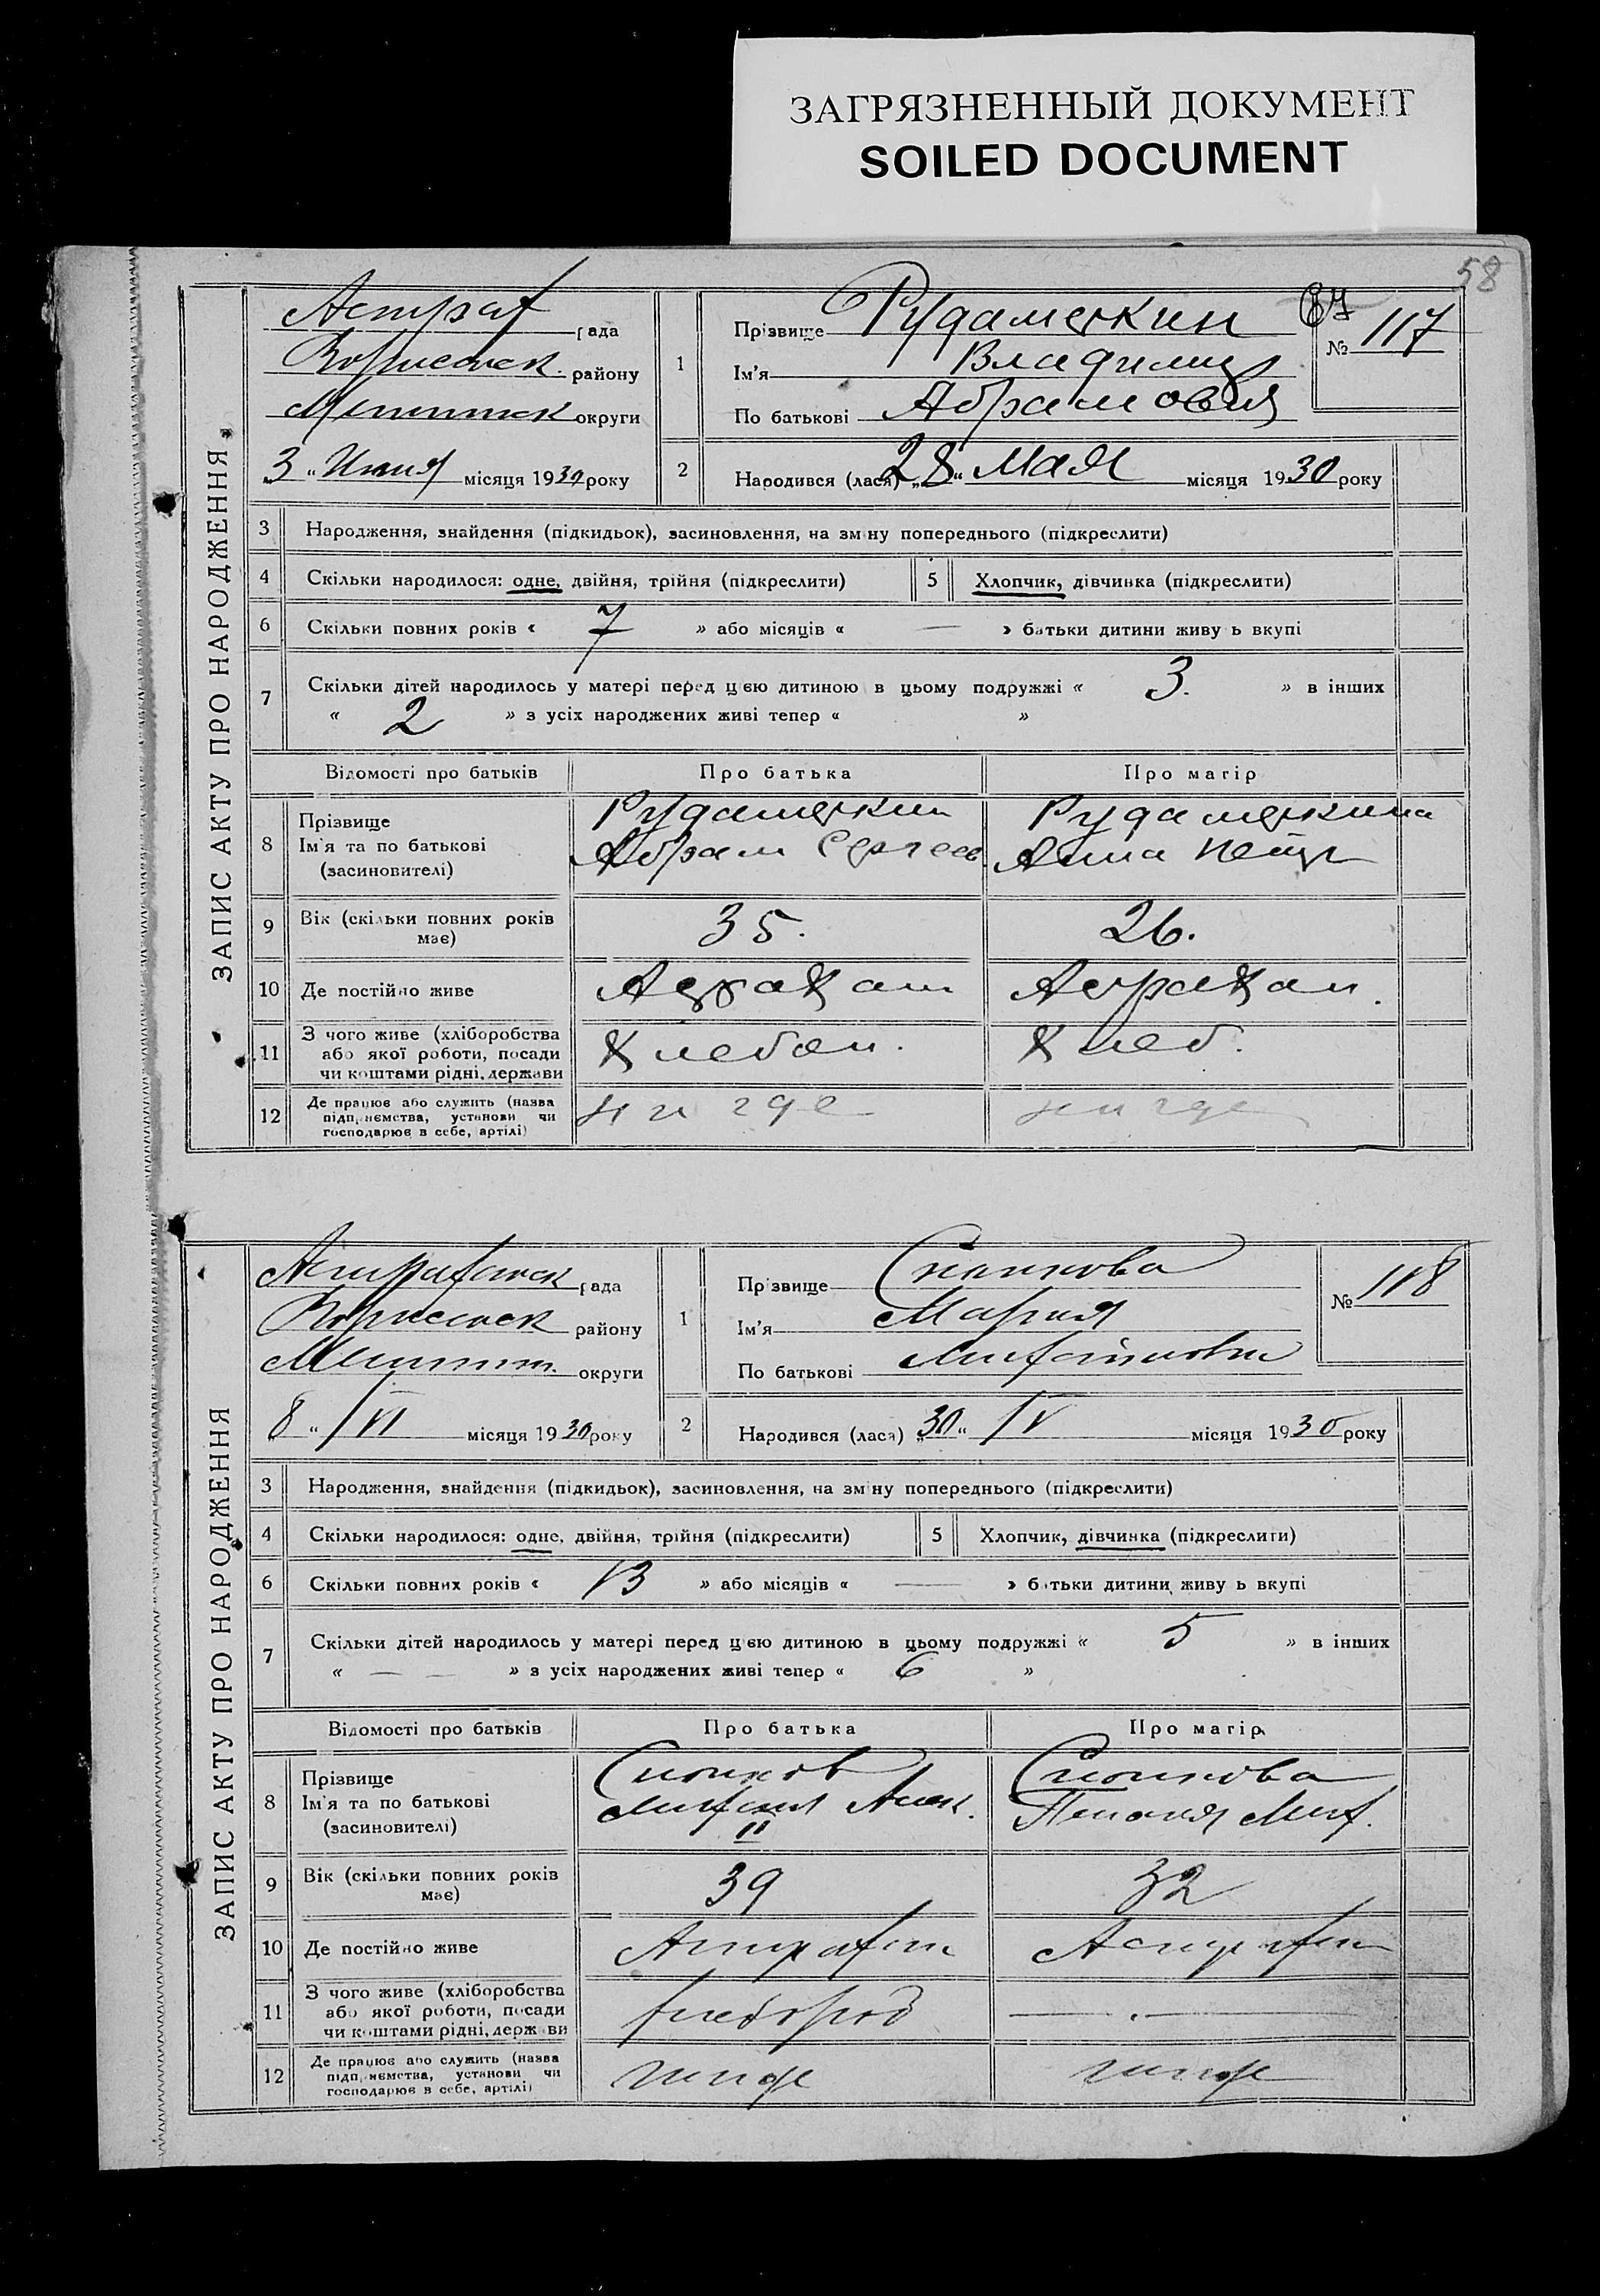 ЗАГРЯЗНЕННЫЙ ДОКУМЕНТ
SOILED DOCUMENT
58
ЗАПИС АКТУ ПРО НАРОДЖЕННЯ
Астрах рада
району
округи
3 " Июня місяця 1930 року
1
Прізвище Рудаметкин
Ім'я Владимир
По батькові Абрамович
87
№ 117
2
Народився (лася) „28" Мая місяця 1930 року
3 Народження, знайдення (підкидьок), засиновлення, на зміну попереднього (підкреслити)
4 Скільки народилося: одне, двійня, трійня (підкреслити)
5 Хлопчик, дівчинка (підкреслити)
6 Скільки повних років « 7 » або місяців « — » батьки дитини живуть вкупі
7 Скільки дітей народилось у матері перед цією дитиною в цьому подружжі « 3. » в інших
« 2 » з усіх народжених живі тепер « »
Відомості про батьків Про батька Про матір
8 Прізвище Рудаметкин Рудаметкина
Ім'я та по батькові Абрам Сергеев Анна Петр
(засиновителі)
9 Вік (скільки повних років має) 35. 26.
10 Де постійно живе Астрахан Астрахан.
11 З чого живе (хліборобства або якої роботи, посади чи коштами рідні, держави Хлебоп. Хлеб.
12 Де працює або служить (назва підприємства, установи чи господарює в себе, артілі) нигде нигде
ЗАПИС АКТУ ПРО НАРОДЖЕННЯ
Астраханск рада
району
округи
8 " / VI місяця 1930 року
1
Прізвище
Ім'я Мария
По батькові Михайловна
№ 118
2
Народився (лася) „30" / V місяця 1930 року
3 Народження, знайдення (підкидьок), засиновлення, на зміну попереднього (підкреслити)
4 Скільки народилося: одне, двійня, трійня (підкреслити)
5 Хлопчик, дівчинка (підкреслити)
6 Скільки повних років « 13 » або місяців « — » батьки дитини живуть вкупі
7 Скільки дітей народилось у матері перед цією дитиною в цьому подружжі « 5 » в інших
« — — » з усіх народжених живі тепер « 6 »
Відомості про батьків Про батька Про матір
8 Прізвище
Ім'я та по батькові Михаил Алек. Мих.
(засиновителі) II
9 Вік (скільки повних років має) 39 32
10 Де постійно живе Астрахан Астрахан
11 З чого живе (хліборобства або якої роботи, посади чи коштами рідні, держави хлебороб —
12 Де працює або служить (назва підприємства, установи чи господарює в себе, артілі) нигде нигде